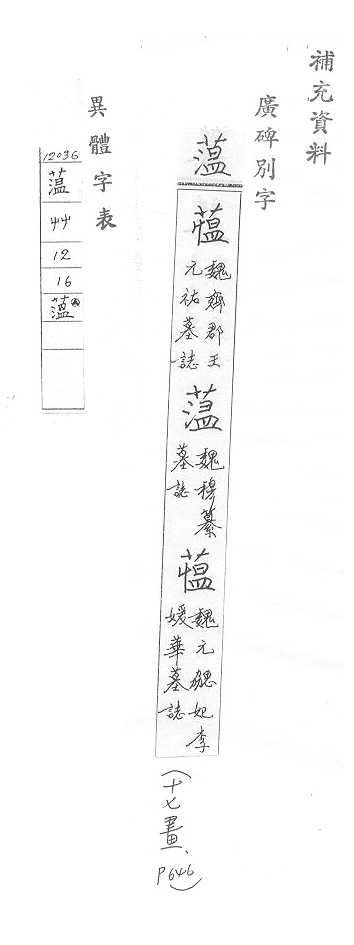 補充資料
廣碑別字
薀
蘊 魏齊郡王元祐墓誌
薀 魏穆纂墓誌
蘊 魏元勰妃李媛華墓誌
(十七畫、P646)
異體字表
12036
薀
艸
12
16
薀